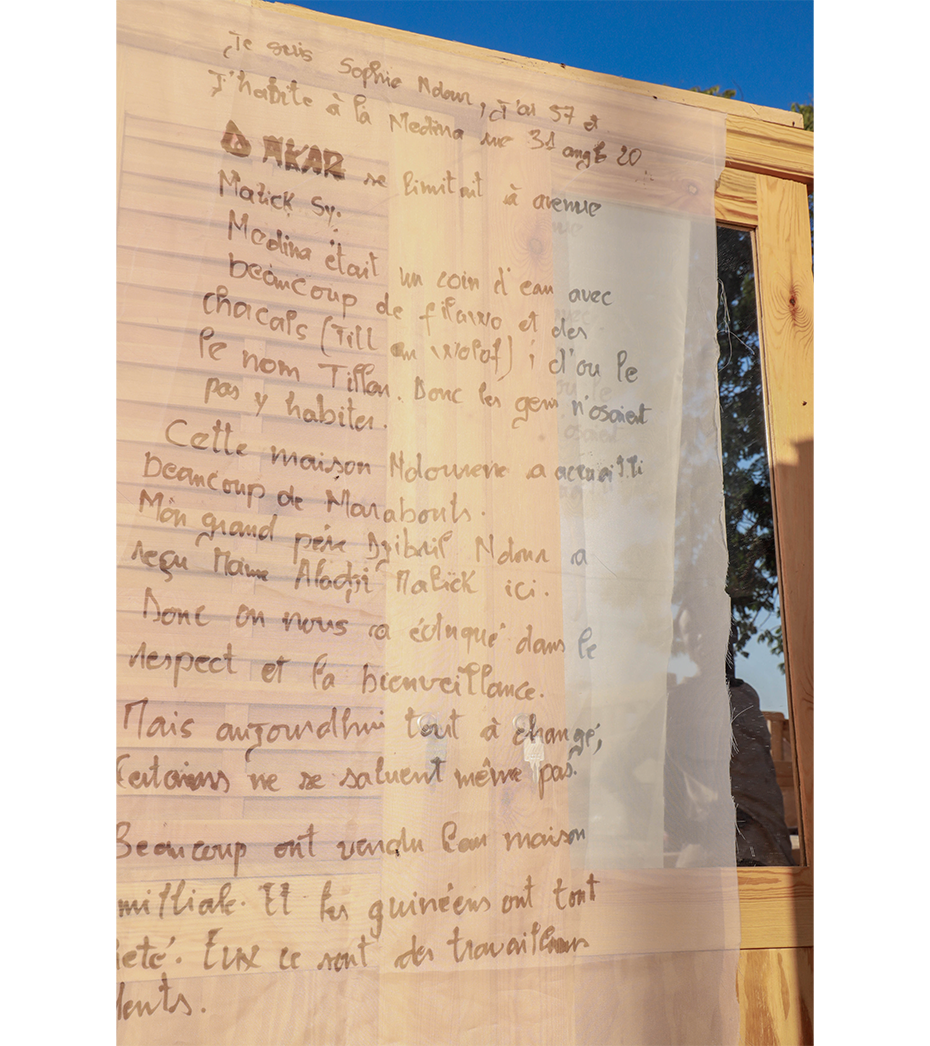 Je suis Sophie Ndour, j'ai 57 et
J'habite à la Medina rue 31 angle 20
DAKAR se limitait à avenue
Malick Sy.
Medina était un coin d'eau avec
beaucoup de filawo et des
chacals (Till en wolof) i d'ou le
le nom Tillen. Donc les gens n'osaient
pas y habiter.
Cette maison Ndourene a accueilli
beaucoup de Marabouts.
Mon grand père Djibril Ndour a
reçu Mame Aladji Malick ici.
Donc on nous a éduqué dans le
respect et la bienveillance.
Mais aujourdhui tout à changé,
Certains ne se saluent même pas.
Beaucoup ont vendu leur maison
milliale. Et les guinéens ont tout
ieté. Eux ce sont des travailleurs
dents.